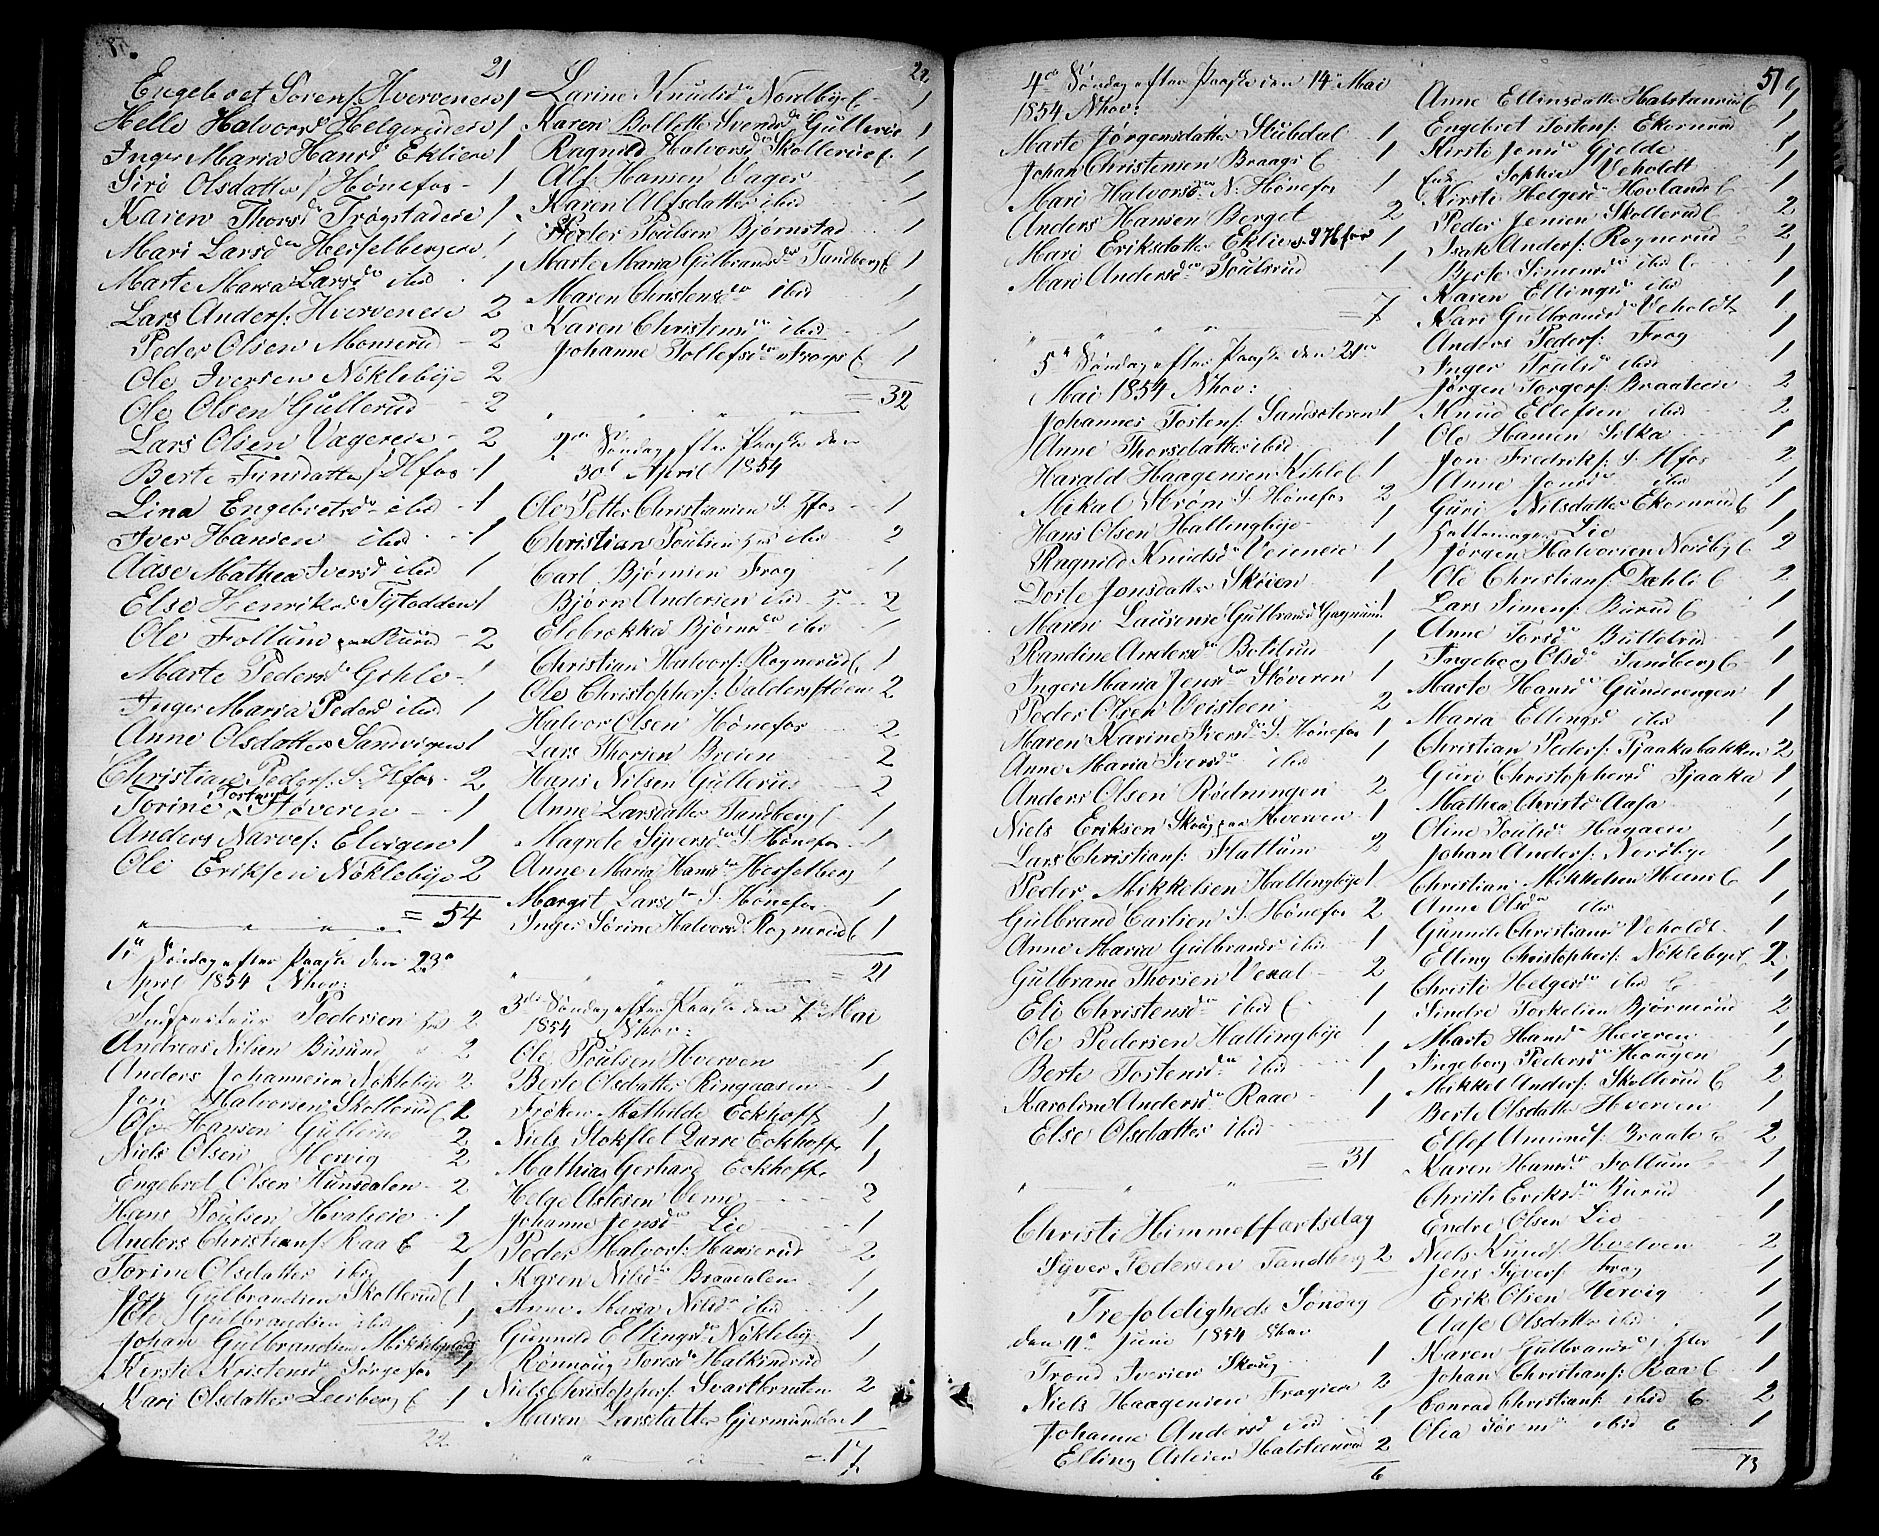 21
Engebret Sørens: Hverveneie 1
Helle Halvorsd Helgerudeie 1
Inger Maria Hansd Eklieie 1
Siri Olsdatter Hønefos - 1
Karen Thorsd Trøgstadeie 1
Mari Larsd Hesselbergeie 1
Marte Maria Larsd ibid - 1
Lars Anders: Hverveneie 2
Peder Olsen Momerud - 2
Ole Iversen Nøklebye 2
Ole Olsen Gullerud - 2
Lars Olsen Vagereie - 2
Berte Finsdatter Hfos - 1
Lina Engebretsd ibid - 1
Iver Hansen ibid - 1
Aase Mathea Iversd ibid 1
Else Henriksd 1
Ole Follum 2
Marte Pedersd 1
Inger Maria Pedersd ibid 1
Anne Olsdatter Sandvigen 1
Christian Peders: S. Hfos - 2
Torine Støveren - 1
Anders Narves: Elvigen 1
Ole Eriksen Nøklebye 2
= 54
1ste Søndag efter Paaske den 23de
April 1854 Nhov:
Inspecteur Pedersen 2
Andreas Nilsen Busund 2
Anders Johannesen Nøklebye 2
Jon Halvorsen Skollerud 2
Ole Hansen Gullerud 2
Niels Olsen Hervig 2
Engebret Olsen Hunsdalen 2
Hans Poulsen Hvalseie 1
Anders Christians: Raa E - 2
Torine Olsdatter ibid 1
Gulbrandsen Skollerud 1
Ole Gulbrandsen ibid 1
Johan Gulbrandsen
Kirsti Kristensd Sørgefos 1
Kari Olsdatter Leerberg 1
22
22
Larine Knudsd Nordbye 1
Karen Bollette Svendsd Gullerud 1
Ragnild Halvorsd Skollerud 1
Alf Hansen Vager 1
Karen Alfsdatter ibid 1
Peder Poulsen Bjørnstad 1
Marte Maria Gulbransd Tandberg 1
Maren Christensd ibid 1
Karen Christensd ibid 1
Johanne Tollefsd Frogs 1
= 32
2den Søndag efter Paaske den
30te April 1854
Ole Petter Christiansen S. Hfos - 1
Christian Poulsen ibid 2
Carl Bjørnsen Frog - 1
Bjørn Andersen ibid 2
Elebrækka Bjørnsd ibid 1
Christian Halvors: Rognerud 1
Ole Christophers: Valderstøen 2
Halvor Olsen Hønefos 2
Lars Thorsen Breien 2
Hans Nilsen Gullerud 2
Anne Larsdatter Tandberg 1
Magrete Syversd S. Hønefos - 1
Anne Maria Hansd Hesselberg 1
Margit Larsd S. Hønefos 1
Inger Sørine Halvorsd Rognerud 1
= 21
3die Søndag efter Paaske den 7de Mai
1854 Nhov:
Ole Poulsen Hverven 1
Berte Olsdatter Ringaasen 1
Frøken Mathilde Eckhoff 1
Niels Stokflet Darre Eckhoff 1
Mathias Gerhard Eckhoff 1
Helge Aslesen Veme 2
Johanne Jensd Lie 1
Peder Halvors: Hanserud 2
Karen Nilsd Braadalen 1
Anne Maria Nilsd ibid 1
Gunnild Ellingsd Nøklebye 1
Rønnoug Toresd Halkinrud 1
Niels Christophers: Svartbraaten 2
Maren Larsdatter Gjermundbo 1
= 17
4de Søndag efter Paaske den 14de Mai
1854 Nhov:
Marte Jørgensdatter Stubdal 1
Johan Christensen Braags 1
Mari Halvorsd N. Hønefos 1
Anders Hansen Berget 2
Mari Eriksdatter Eklien 1
Mari Andersd Poulsrud 1
= 7
5te Søndag efter Paaske den 21de
Mai 1854 Nhov:
Johannes Tostens: Sandsæteren 1
Anne Thorsdatter ibid 1
Harald Haagensen Kihle 1
Mikal Strøm S. Hønefos 2
Hans Olsen Hallingbye 1
Ragnild Knudsd Veieneie 1
Dorte Jonsdatter Skøien 1
Maren Laurense Gulbransd 1
Randine Andersd Botilrud 1
Inger Maria Jensd Støveren 1
Peder Olsen Veisteen 2
Maren Karine Iversd S. Hønefos 1
Anne Maria Iversd ibid 1
Anders Olsen Rødningen 2
Niels Eriksen Skoug paa Hverven 1
Lars Christians: Flattum 2
Peder Mikkelsen Hallingbye 1
Gulbrand Carlsen S. Hønefos 2
Anne Maria Gulbrandsd ibid 1
Gulbrand Thorsen Vexal - 2
Eli Christensd ibid 1
Ole Pedersen Hallingbye 1
Berte Tostensd ibid 1
Karoline Andersd Raae 1
Else Olsdatter ibid 1
= 31
Christi Himmelfartsdag
Syver Pedersen Tandberg 2
Trefoldigheds Søndag
den 11te Juni 1854 Nhov
Trond Iversen Skoug 1
Niels Haagensen Frogseie 2
Johanne Andersd ibid 1
Elling Aslesen Halsteenrud 2
6
51
Anne Ellensdatter Halsteenrud 1
Engebret Tostens: Ekornrud 1
Kirsti Jonsd Gjelde 1
Sophie Veholdt 1
Kirsti Helgesd Hovland 1
Peder Jensen Skollerud 2
Isak Anders: Rognerud 2
Berte Simensd ibid 1
Karen Ellingsd ibid 1
Kari Gulbransd Veholdt 1
Anders Peders: Frog 1
Inger ibid 1
Jørgen Torgers: Braateeie 2
Knud Ellefsen ibid 2
Ole Hansen Silka 1
Jon Fredriks: S. Hfos 2
Anne Jonsd ibid 1
Guri Nilsdatter Ekornrud 1
Hattemager Lie 1
Jørgen Halvorsen Nordbye 2
Ole Christians: Dæhli 2
Lars Simens: Burud 1
Anne Torsd Bultebrud 1
Ingeborg Olsd Tandberg 1
Marte Hansd Gunderengen 1
Maria Ellingsd ibid 1
Christian Peders: Tjaakabakken 2
Guri Christophersd Tjaaka 1
Mathea Christi Aasa 1
Oline Poulsd Hagaeie 1
Johan Anders: Nordbye 1
Christian Mikkelsen Hiens 1
Anne Olsd ibid 1
Gunnild Christiansd Veholdt 1
Elling Christophers: Nøklebye 2
Christi Helgesd ibid 1
Sindre Torkelsen Bjørnerud 2
Marte Hansd Heieren 1
Ingeborg Pedersd Haugen 1
Mikkel Anders: Skollerud 2
Berte Olsdatter Hverven 1
Ellef Amunds: Braate 2
Karen Hansd Follum 1
Christi Eriksd Burud 1
Endre Olsen Lie 1
Niels Knuds: Hvelven 2
Jens Syvers: Frog 1
Erik Olsen Hervig 1
Aase Olsdatter ibid 1
Karen Gulbransd 1
Johan Christians: Raa 1
Conrad Christians: ibid 2
Olea ibid 1
73